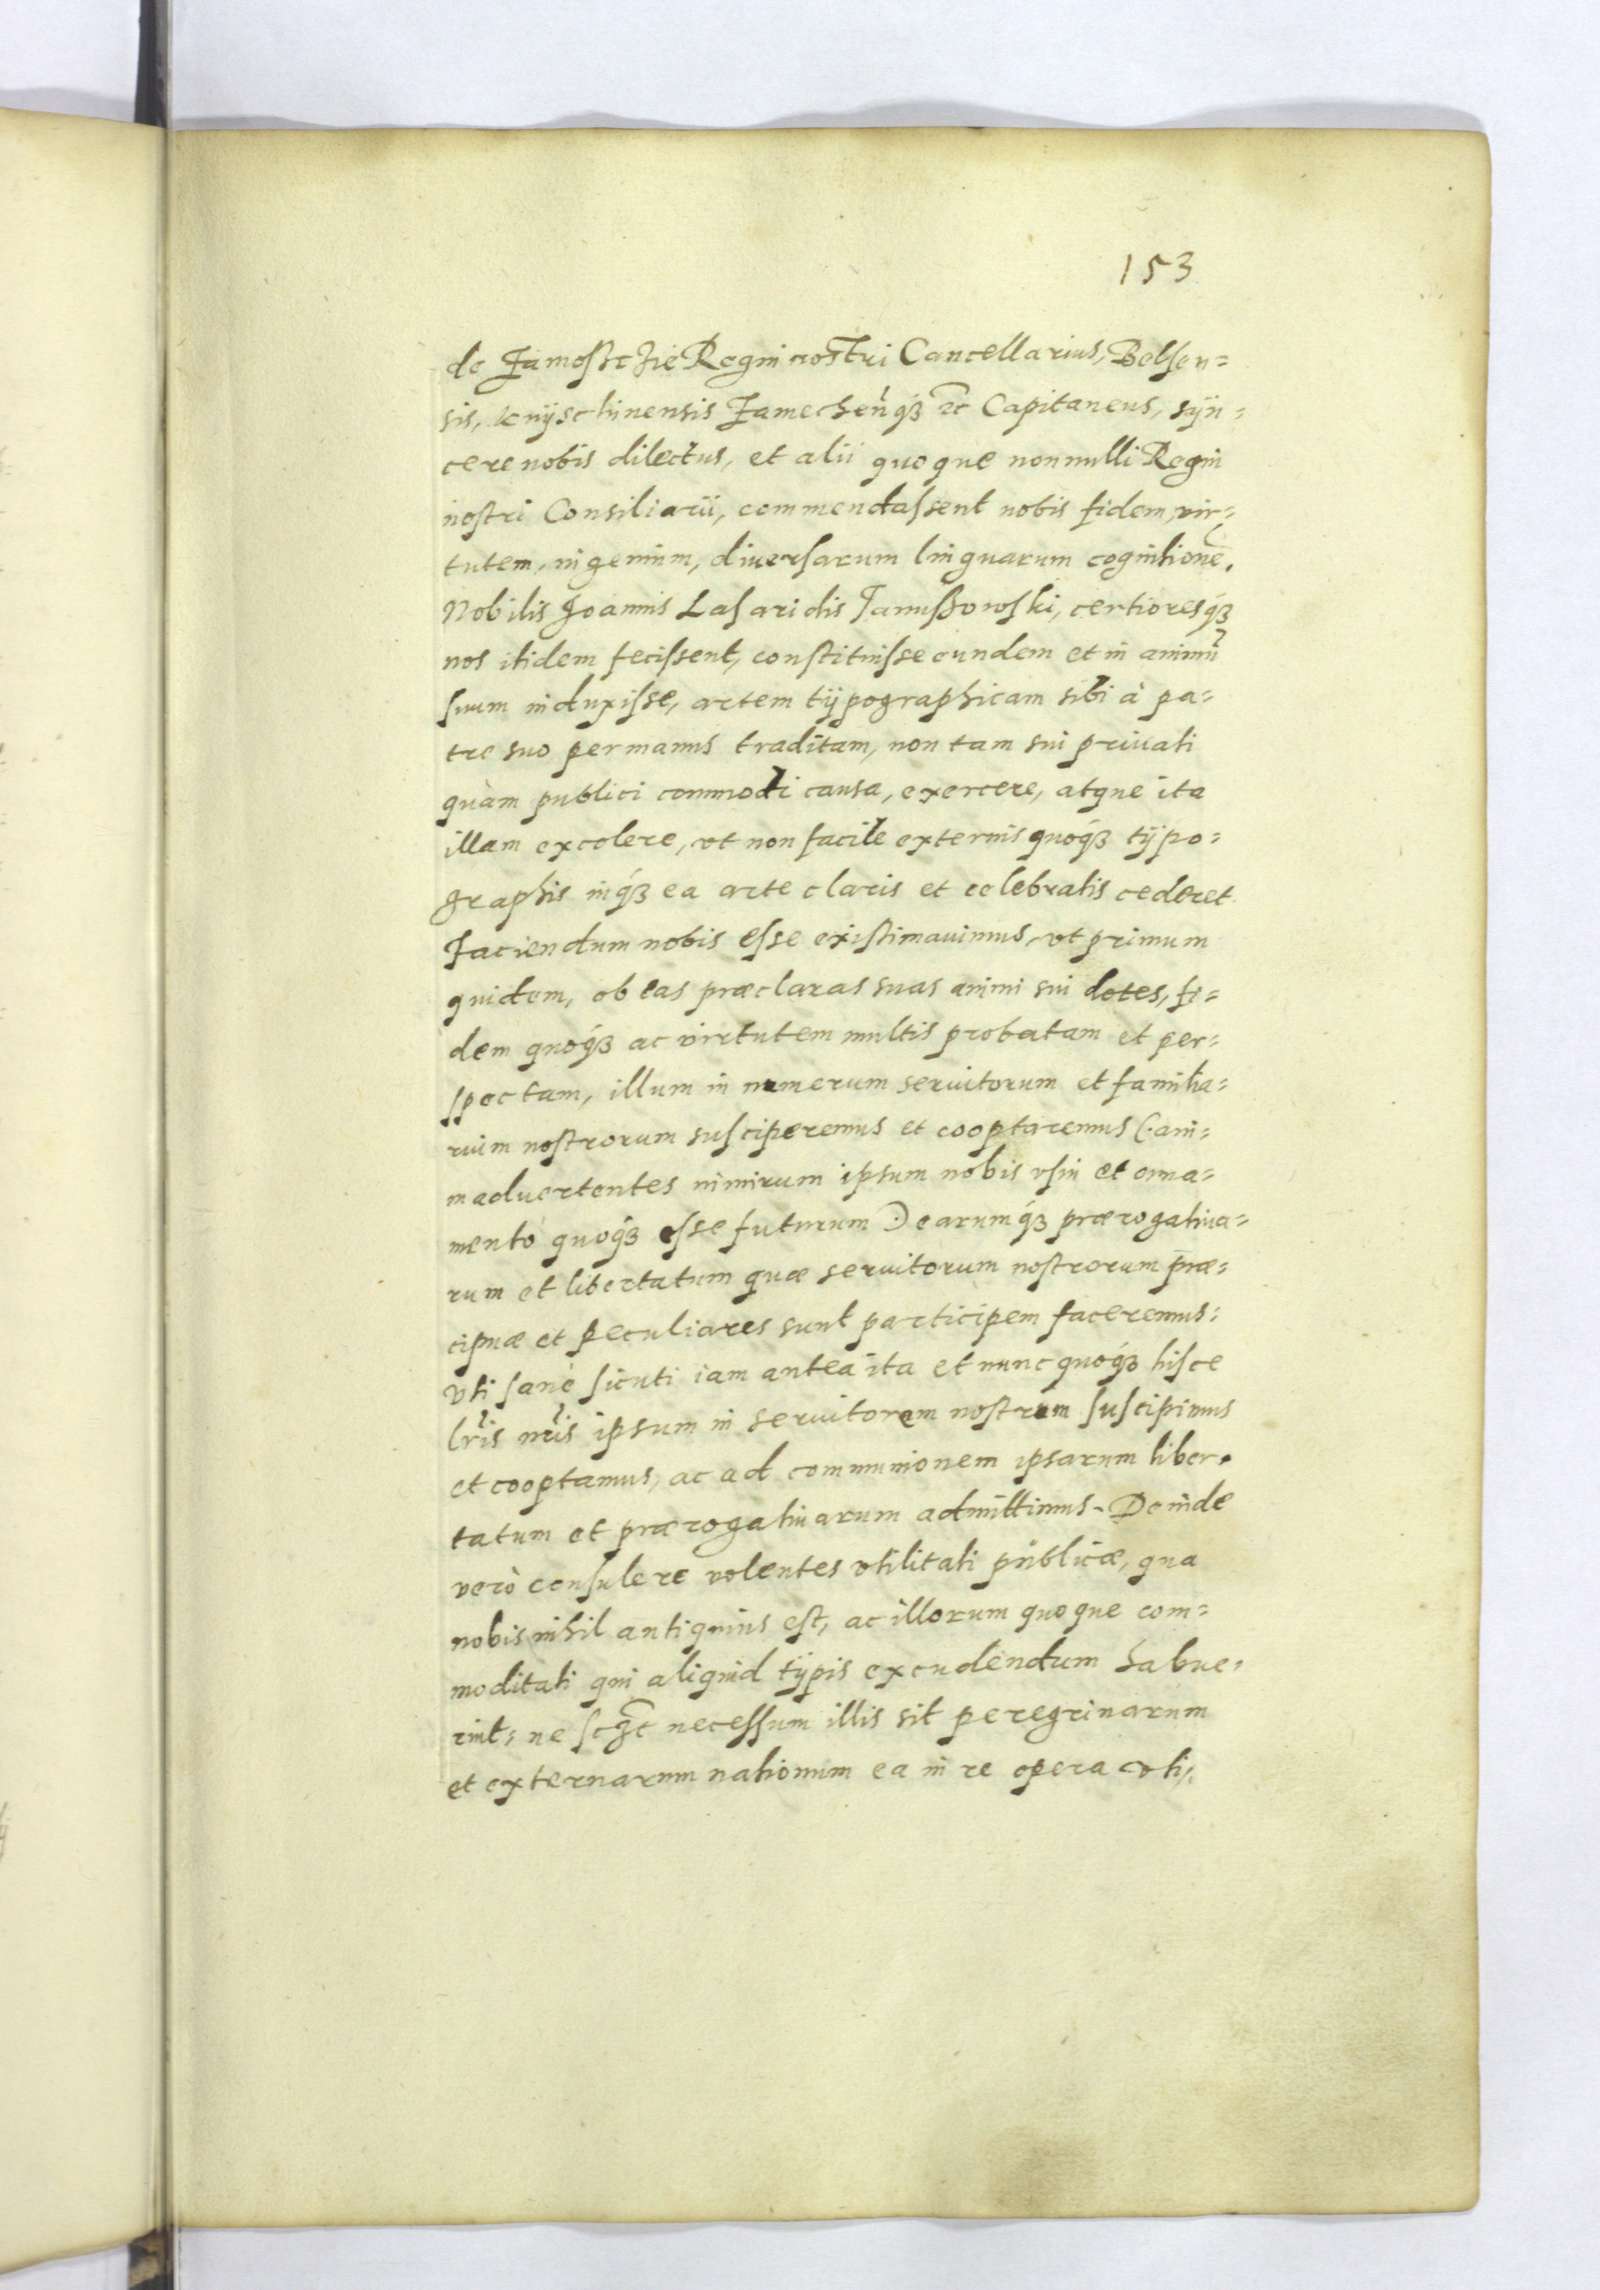 153
de Zamoscie Regni nostri Cancellarius, Belsen=
sis, Knijschinensis Zamechen̄q́ꝫ ꝛc̄ Capitaneus, sÿn=
cere nobis dilectus, et alii quoque nonnulli Regni
nostri Consiliarii, commendassent nobis fidem, vir=
tutem, ingenium, diversarum linguarum cognitionē.
Nobilis Joannis Lasaridis Janussowski, certioresq́ꝫ
nos itidem fecissent, constituisse eundem et in animū
suum induxisse, artem tÿpographicam sibi à pa=
tre suo per manus traditam, non tam sui priuati
quàm publici commodi causa, exercere, atque ita
illam excolere, vt non facile externis quoq́ꝫ tÿpo=
graphis inq́ꝫ ea arte claris et celebratis cederet
Faciendum nobis esse existimauimus, vt primum
quidem, ob eas præclaras suas animi sui dotes, fi=
dem quoq́ꝫ ac virtutem multis probatam et per=
spectam, illum in numerum seruitorum et familia=
rium nostrorum susciperemus et cooptaremus (: ani=
maduertentes nimirum ipsum nobis vsui et orna=
mento quoq́ꝫ esse futurum :) earumq́ꝫ prærogatiua=
rum et libertatum quæ seruitorum nostrorum præ=
cipuæ et peculiares sunt participem faceremus:
Vti sanè sicuti iam antea ita et nunc quoq́ꝫ hisce
lr̃is nr̃is ipsum in seruitorem nostrum suscipimus
et cooptamus, ac ad communionem ipsarum liber=
tatum et prærogatiuarum admittimus. Deinde
verò consulere volentes vtilitati publicæ, qua
nobis nihil antiquius est, ac illorum quoque com=
moditati qui aliquid tÿpis excudendum habue=
rint, ne scꝫt necessum illis sit peregrinarum
et externarum nationum ea in re opera vti,